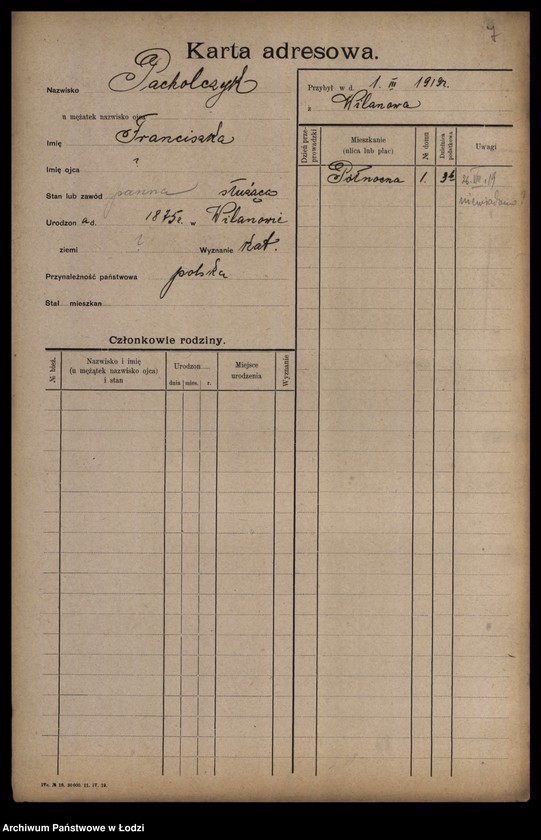 7
Karta adresowa.
Nazwisko Pacholczyk
u mężatek nazwisko ojca
Imię Franciszka
Imię ojca ?
Stan lub zawód panna służąca
Urodzon a d. 1875 r. w Wilanowie
ziemi ? Wyznanie kat.
Przynależność państwowa polska
Stał. mieszkan.
Przybył w d. 1. III 1919 r.
z Wilanowa
Dzień prze-
prowadzki
Mieszkanie
(ulica lub plac)
№ domu
Dzielnica
podatkowa
Uwagi
Północna 1. 3b 26. VIII. 19
niewiadomo
Członkowie rodziny.
№ bież.
Nazwisko i imię
(u mężątek nazwisko ojca)
i stan
Urodzon
dnia mies. r.
Miejsce
urodzenia
Wyznanie
Archiwum Państwowe w Łodzi